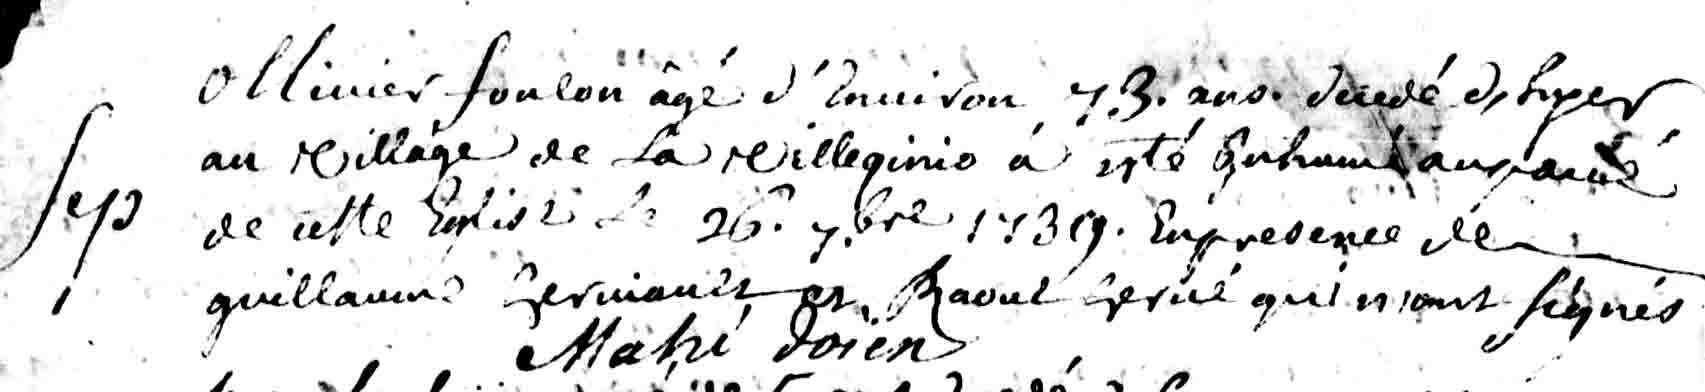 Ollivier foulon âgé d'Environ 73. ans. decedé d'hyer
au village de La villeginio à esté Inhumé au pavé
Sep de cette Eglise Le 26e. 7.bre 1739. En presence de
guillaume et Raoul hervé qui n'ont signés
Mahé doïen